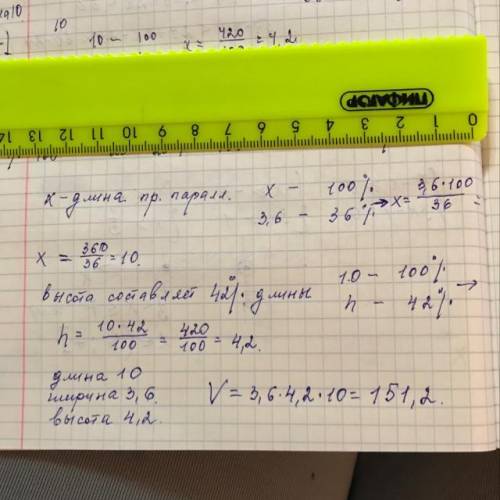 10
10 - 100
x = 420 = 4,2
ПИФАГОР
14 13 12 11 10 9 8 7 6 5 4 3 2 1 0
x - длина пр. паралл.
x - 100%
3,6 - 36% → x = 3,6·100/36 =
x = 360/36 = 10.
высота составляет 42% длины
10 - 100%
h - 42% →
h = 10·42/100 = 420/100 = 4,2.
длина 10
ширина 3,6.
высота 4,2.
V = 3,6·4,2·10 = 151,2.